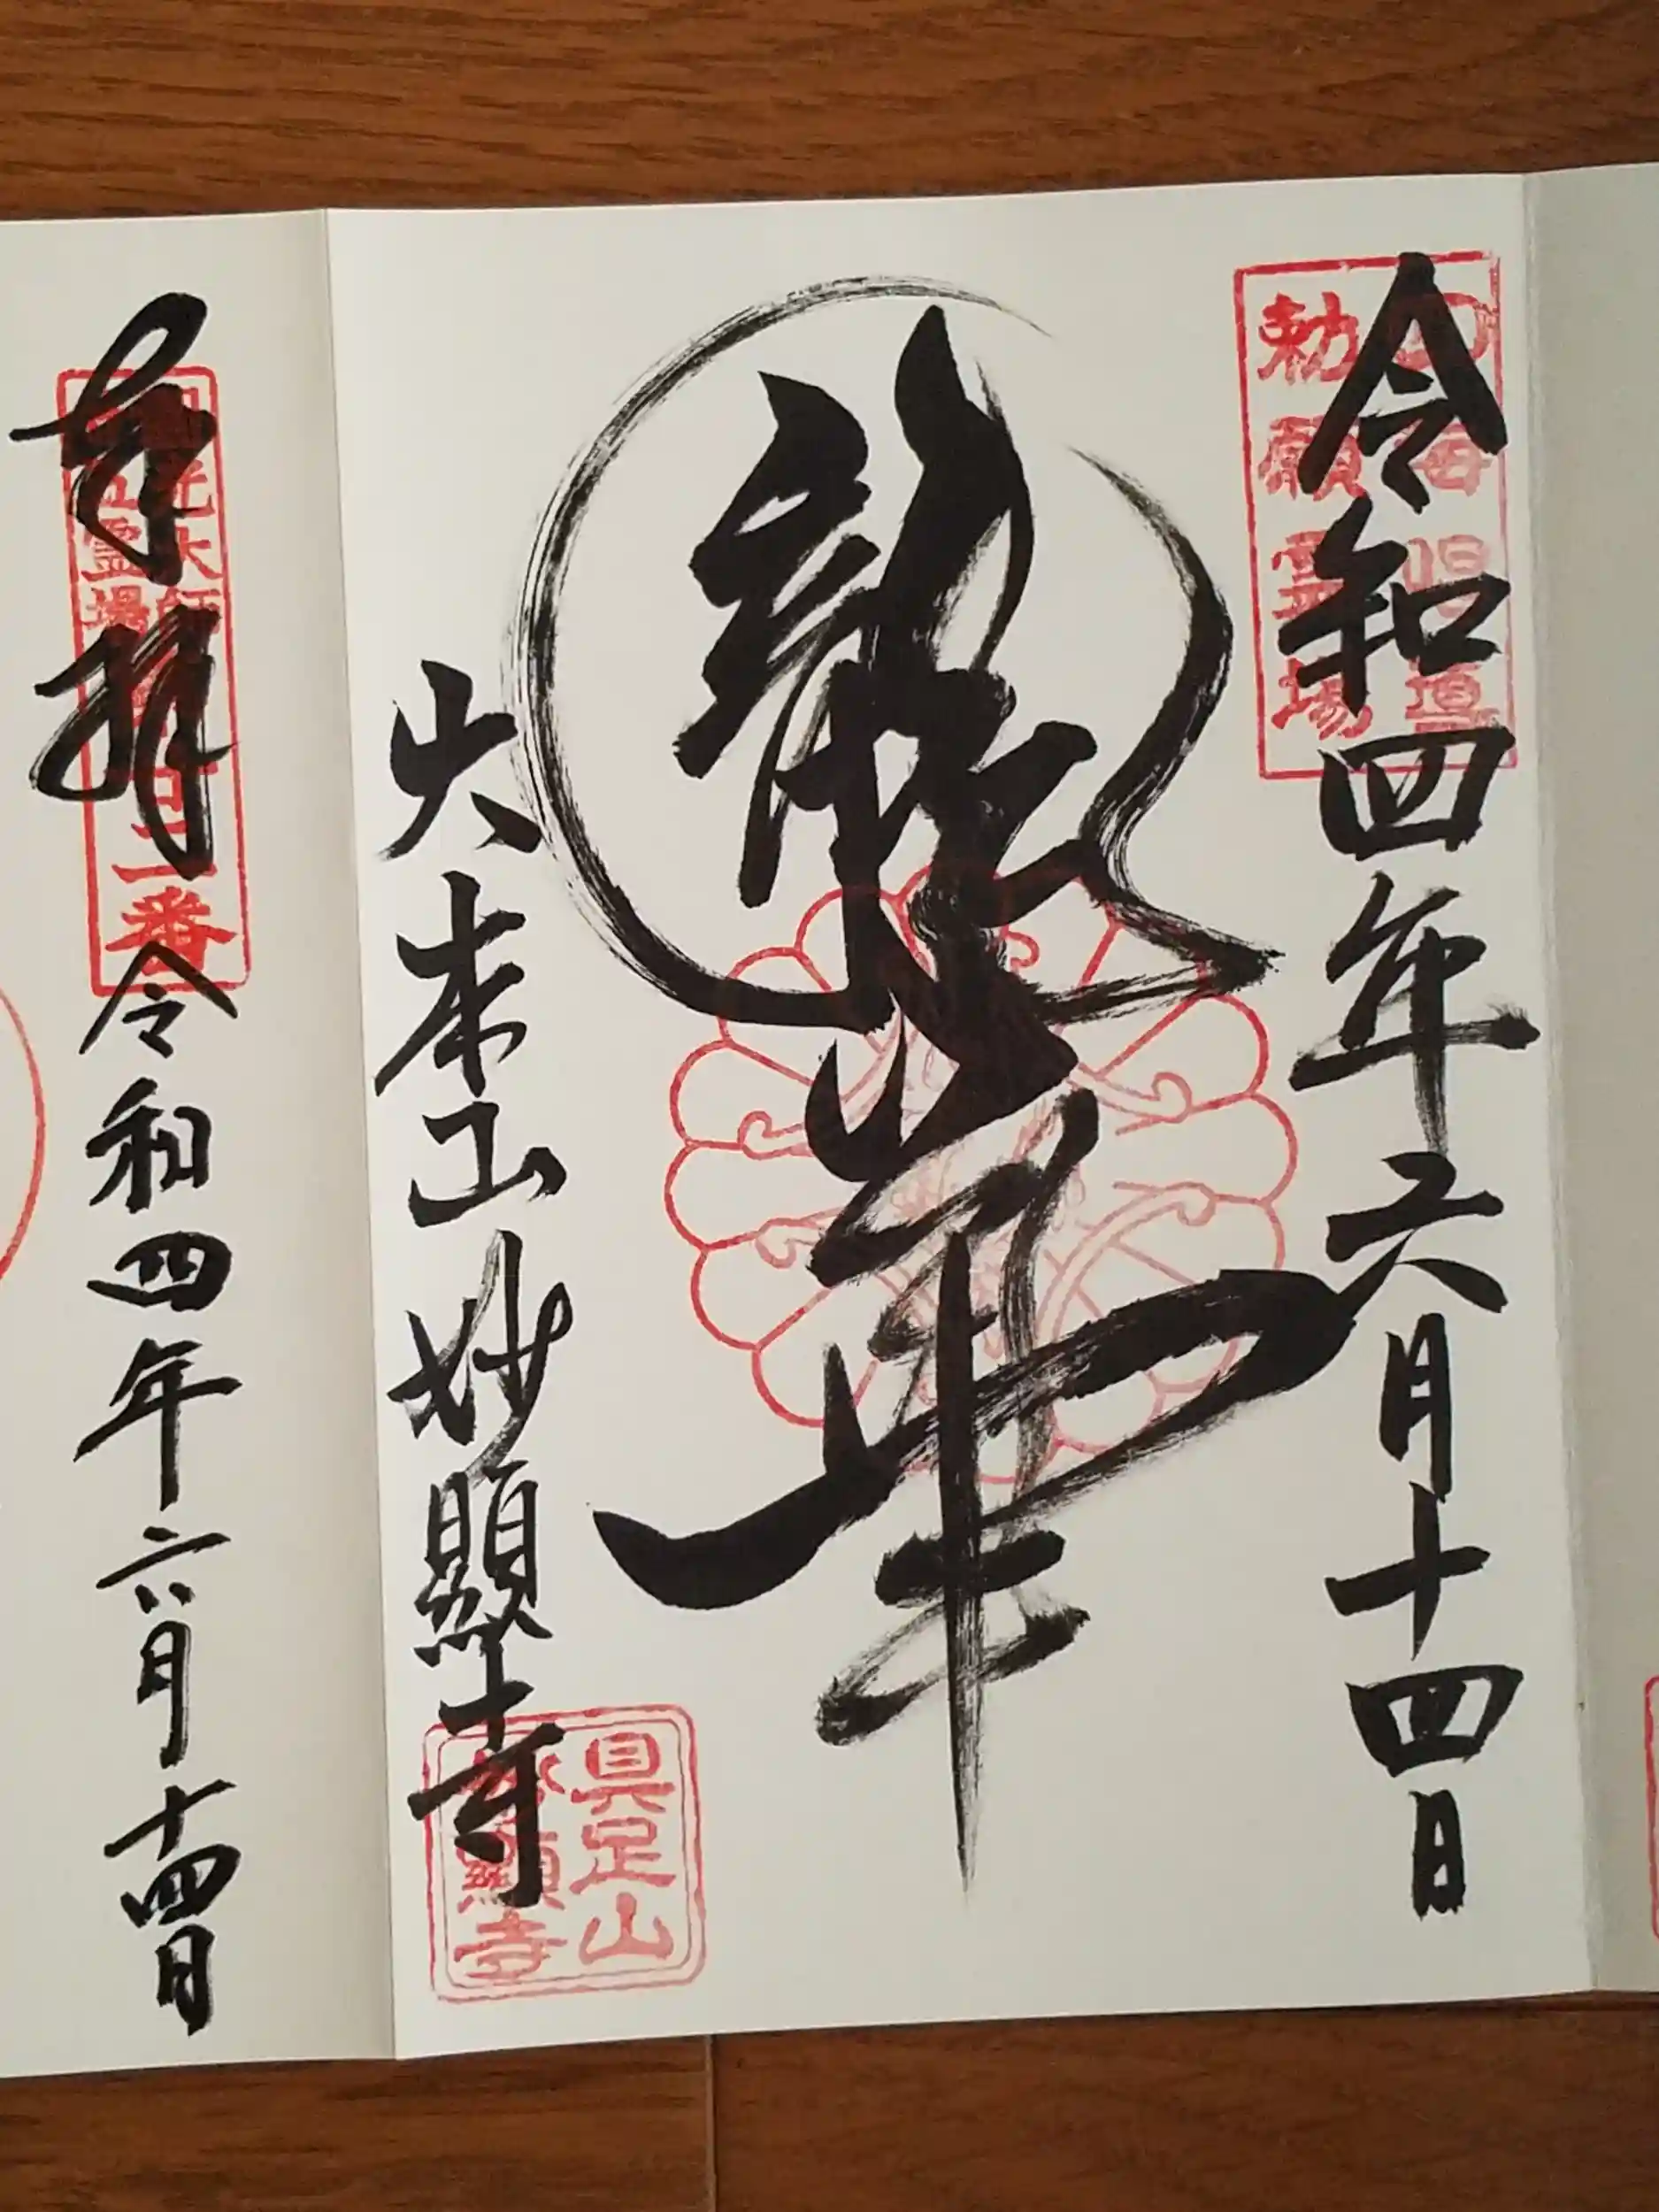 令和四年六月十四日
四海唱導
勅願霊場
龍華
大本山妙顯寺
具足山
妙顯寺
奉拝
令和四年六月十四日
大師
霊場
二番